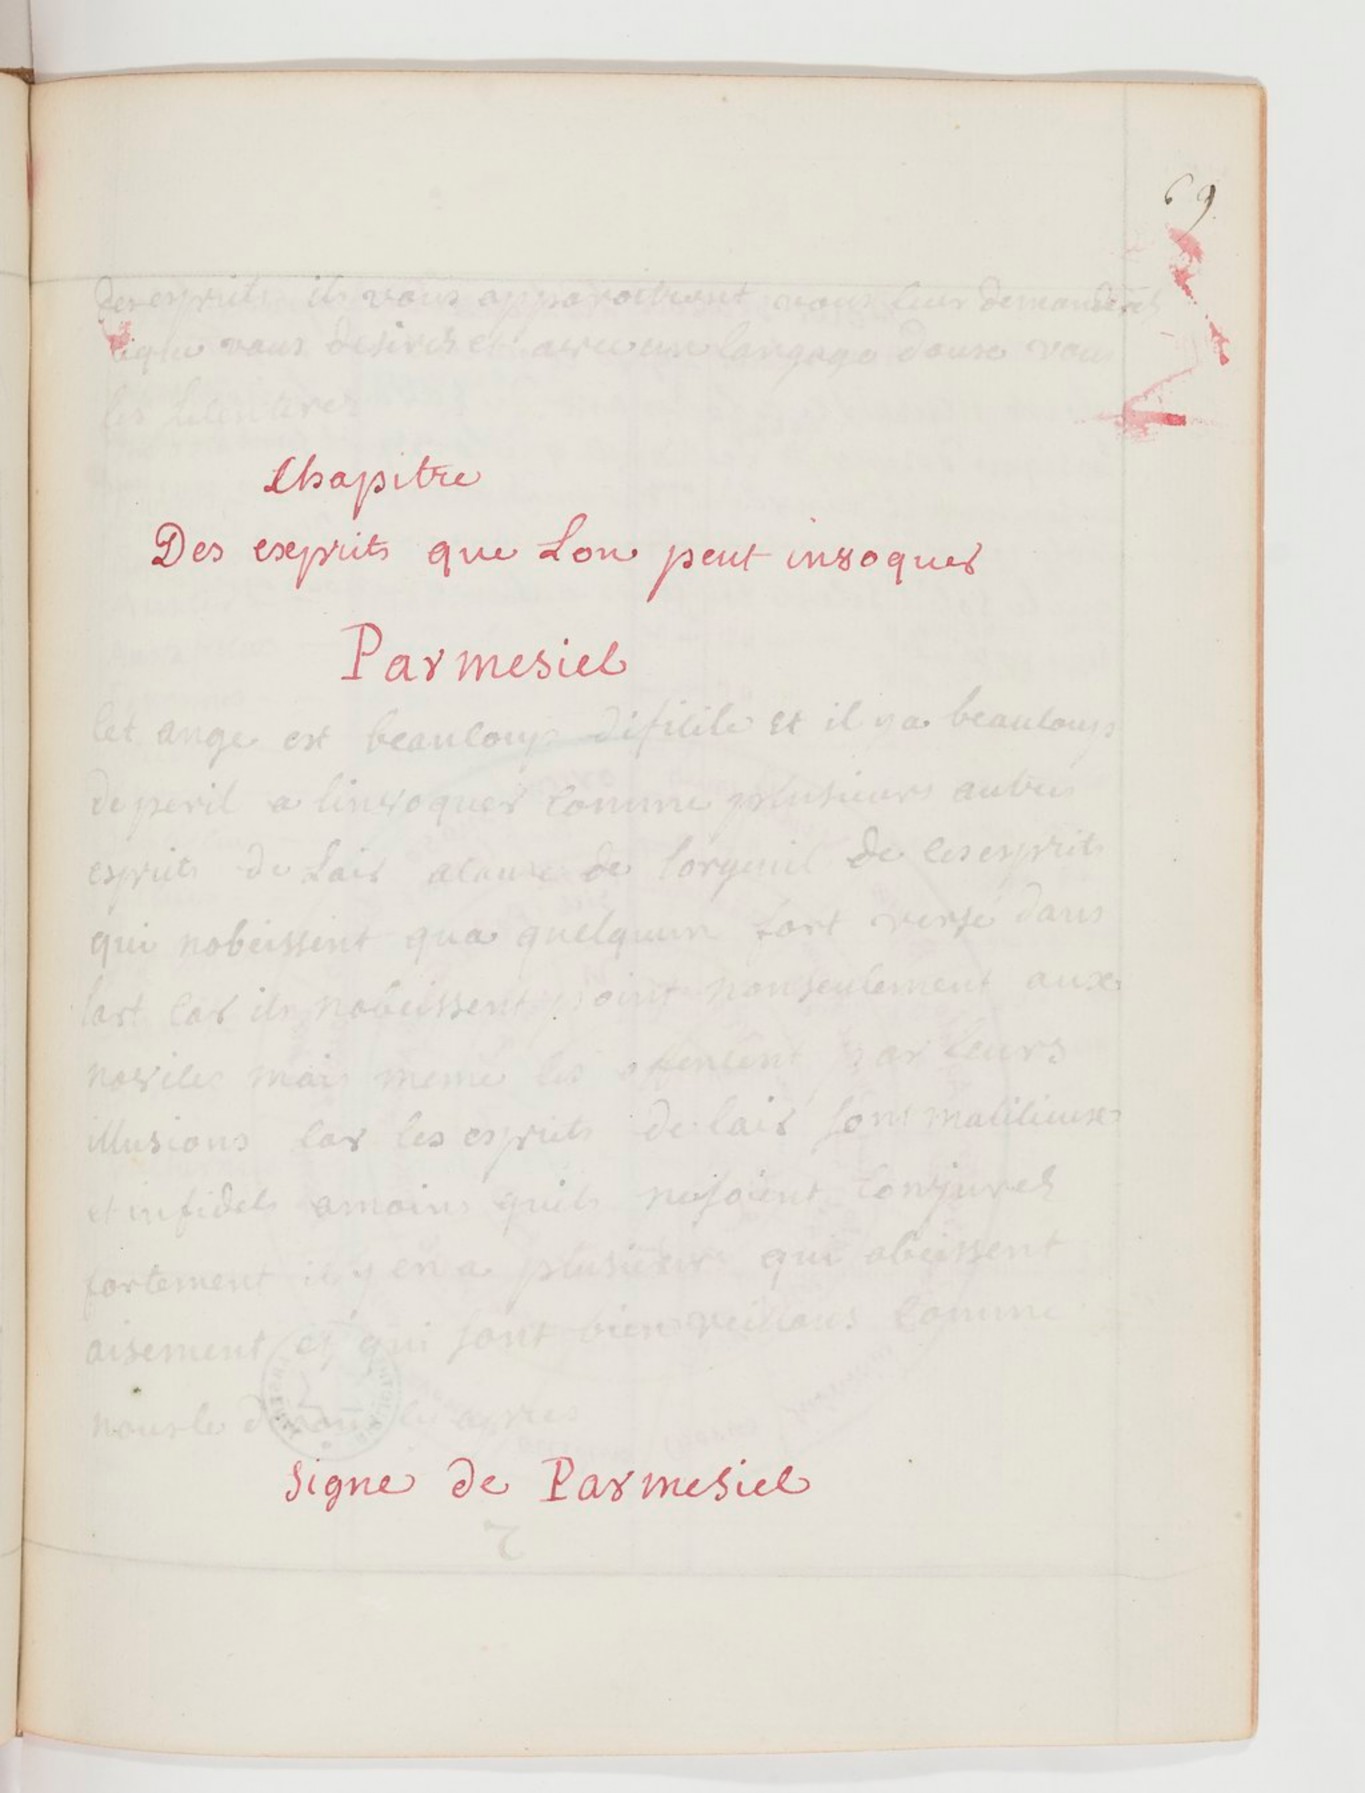 69
des esprits ils vous apparoitront vous leur demanderés
vous desirés et avec un langage doux vous
les
Chapitre
Des esprits que Lon peut invoquer
Parmesiel
cet ange est beaucoup dificile et il y a beaucoup
de peril a linvoquer comme plusieurs autres
esprits de Lair acause de lorgeuil de ces esprits
qui nobeissent qua quelquun fort versé dans
lart car ils nobeissent point non seulement aux
novices mais meme les par leurs
illusions car les esprits de lair sont malicieux
et infidels amoins quils ne soient conjurés
fortement il y en a plusieurs qui obeissent
aisement et qui sont bien comme
nous le apres
Signe de Parmesiel